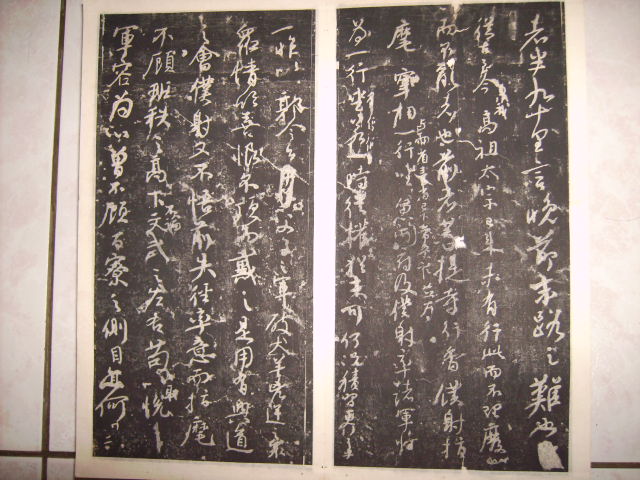 者半九十里言晚節末路之難也
從古至今暨我高祖太宗已來未有行此而不理廢此
而不亂者也前者菩提寺行香僕射指
麾宰相與兩省臺省已下常參官並為一行坐魚開府及僕射率諸軍將
為一行坐若一時從權亦猶未可何況積習更行之乎
一昨以郭令公以父子之軍破犬羊凶逆之眾
眾情欣喜恨不頂而戴之是用有興道
之會僕射又不悟前失徑率意而指麾
不顧班秩之高下不論文武之左右苟以取悅
軍容為心曾不顧百寮之側目亦何